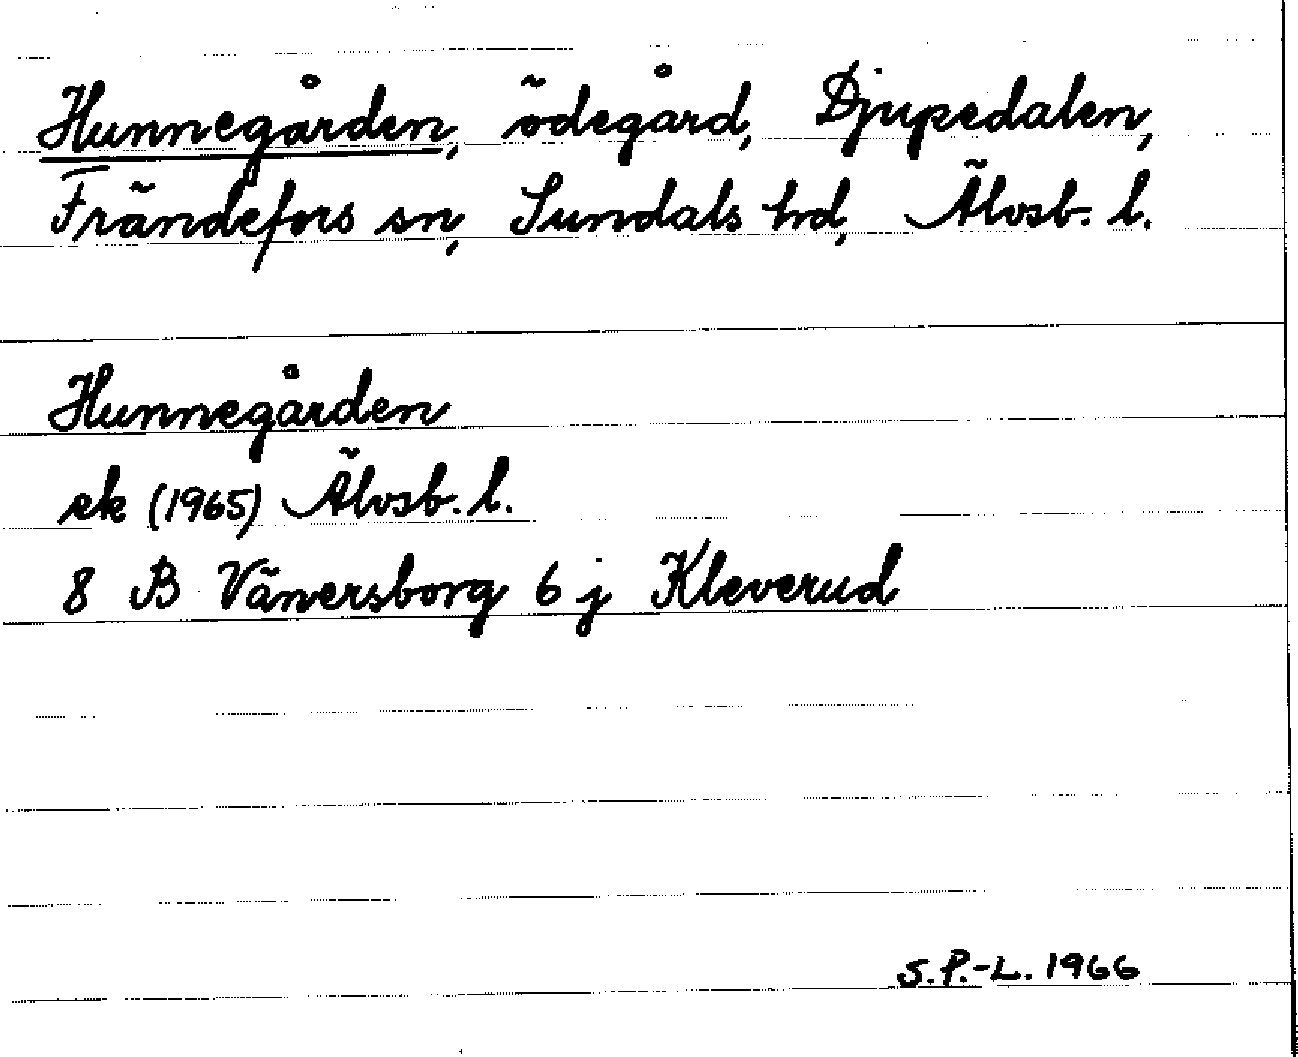 Hunnegården, ödegård, Djupedalen,
Frändefors sn, Sundals hd, Älvsb. l.
Hunnegården
ek (1965) Älvsb. l.
8 B Vänersborg 6 j Kleverud
S.P.-L. 1966